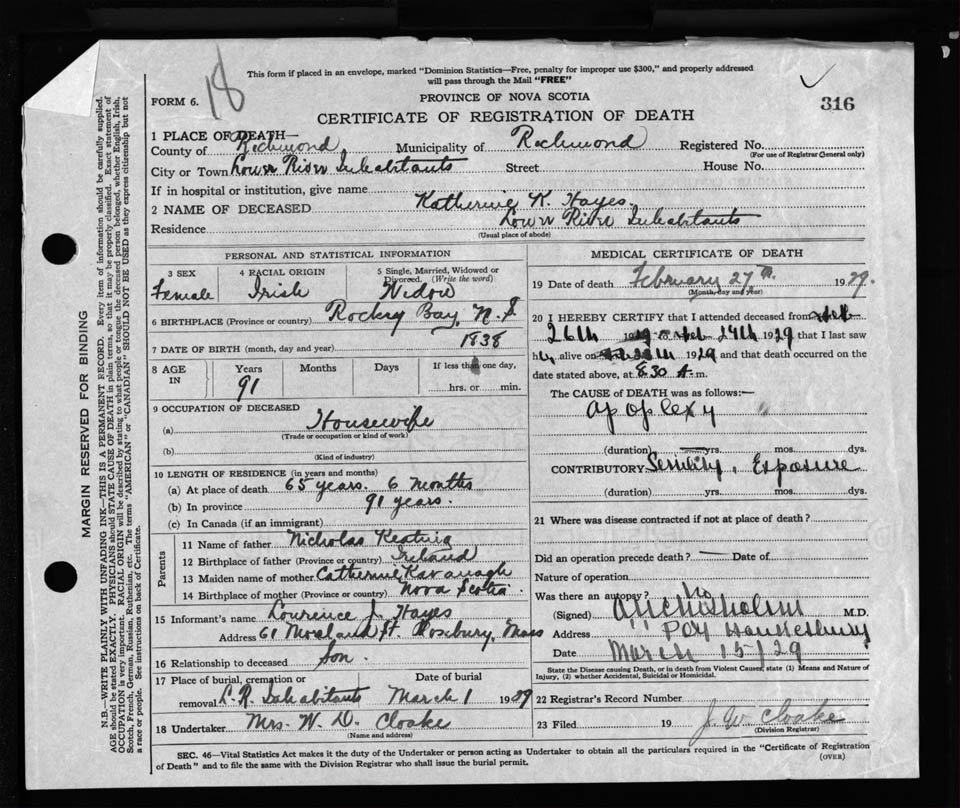 18
This form if placed in an envelope, marked "Dominion Statistics—Free, penalty for improper use $300," and properly addressed
will pass through the Mail "FREE"
FORM 6.
PROVINCE OF NOVA SCOTIA
316
CERTIFICATE OF REGISTRATION OF DEATH
1 PLACE OF DEATH—
County of Richmond Municipality of Richmond Registered No.
(For use of Registrar General only)
City or Town Lower River Inhabitants Street House No.
If in hospital or institution, give name
2 NAME OF DECEASED Katherine K. Hayes
Residence Lower River Inhabitants
(Usual place of abode)
PERSONAL AND STATISTICAL INFORMATION
3 SEX 4 RACIAL ORIGIN 5 Single, Married, Widowed or Divorced. (Write the word)
Female Irish Widow
6 BIRTHPLACE (Province or country) Rocky Bay, N. S.
7 DATE OF BIRTH (month, day and year) 1838
8 AGE IN Years Months Days If less than one day,
91 hrs. or min.
9 OCCUPATION OF DECEASED
(a) Housewife
(Trade or occupation or kind of work)
(b)
(Kind of industry)
10 LENGTH OF RESIDENCE (in years and months)
(a) At place of death 65 years. 6 months
(b) In province 91 years.
(c) In Canada (if an immigrant)
Parents
11 Name of father Nicholas Keating
12 Birthplace of father (Province or country) Ireland
13 Maiden name of mother Catherine Kavanagh
14 Birthplace of mother (Province or country) Nova Scotia
15 Informant's name Lourence J. Hayes
Address 61 Moreland St. Roxbury, Mass
16 Relationship to deceased Son.
17 Place of burial, cremation or removal Date of burial
L. R. Inhabitants March 1 1929
18 Undertaker Mrs. W. D. Cloake
(Name and address)
MEDICAL CERTIFICATE OF DEATH
19 Date of death February 27th. 1929.
(Month, day and year)
20 I HEREBY CERTIFY that I attended deceased from Feb
26th 1929 to Feb 27th 1929 that I last saw
h alive on 1929 and that death occurred on the
date stated above, at 8.30 A. m.
The CAUSE OF DEATH was as follows:—
Apoplexy
(duration) yrs. mos. dys.
CONTRIBUTORY Senility, Exposure
(duration) yrs. mos. dys.
21 Where was disease contracted if not at place of death?
Did an operation precede death? — Date of
Nature of operation
Was there an autopsy? No
(Signed) M.D.
Address Hawkesbury
Date March 15/29
State the Disease causing Death, or in death from Violent Causes, state (1) Means and Nature of
Injury, (2) whether Accidental, Suicidal or Homicidal.
22 Registrar's Record Number
23 Filed 19 J. W. Cloake
(Division Registrar)
SEC. 46—Vital Statistics Act makes it the duty of the Undertaker or person acting as Undertaker to obtain all the particulars required in the "Certificate of Registration
of Death" and to file the same with the Division Registrar who shall issue the burial permit.
(OVER)
MARGIN RESERVED FOR BINDING
N.B.—WRITE PLAINLY WITH UNFADING INK—THIS IS A PERMANENT RECORD. Every item of information should be carefully supplied.
AGE should be stated EXACTLY. PHYSICIANS should STATE CAUSE OF DEATH in plain terms, so that it may be properly classified. Exact statement of
OCCUPATION is very important. RACIAL ORIGIN will be described by stating to what people or tongue the deceased person belonged, whether English, Irish,
Scotch, French, German, Russian, Ruthenian, etc. The terms "AMERICAN" or "CANADIAN" SHOULD NOT BE USED as they express citizenship but not
a race or people. See instructions on back of Certificate.